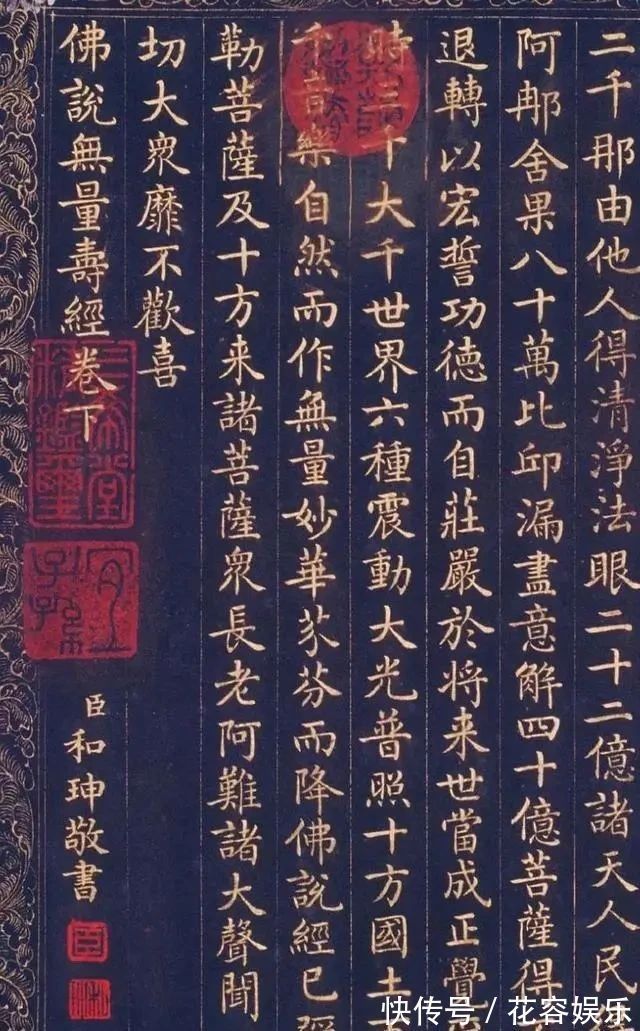 二千那由他人得清淨法眼二十二億諸天人民
阿那舍果八十萬比邱漏盡意解四十億菩薩得
退轉以宏誓功德而自莊嚴於將来世當成正覺
時三千大千世界六種震動大光普照十方國土
千音樂自然而作無量妙華芬芬而降佛說經已彌
勒菩薩及十方来諸菩薩衆長老阿難諸大聲聞
切大衆靡不歡喜
佛說無量壽經卷下
三希堂精鑑璽
宜子孫
臣和珅敬書
臣
快传号/花容娱乐